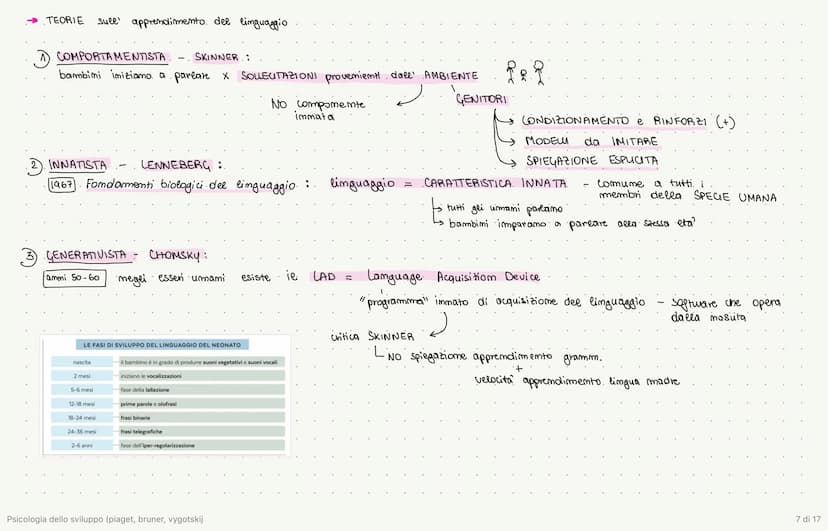 → TEORIE sull' apprendimento del linguaggio
1) COMPORTAMENTISTA - SKINNER :
bambini iniziano a parlare x SOLLECITAZIONI provenienti dall' AMBIENTE
NO componente
innata
GENITORI
→ CONDIZIONAMENTO e RINFORZI (+)
→ MODELLI da IMITARE
→ SPIEGAZIONE ESPLICITA
2) INNATISTA - LENNEBERG :
1967 Fondamenti biologici del linguaggio : linguaggio = CARATTERISTICA INNATA - comune a tutti i
membri della SPECIE UMANA
→ tutti gli umani parlano
→ bambini imparano a parlare alla stessa età
3) GENERATIVISTA - CHOMSKY :
anni 50-60 negli esseri umani esiste il LAD = Language Acquisition Device
"programma" innato di acquisizione del linguaggio - software che opera
dalla nascita
critica SKINNER
NO spiegazione apprendimento gramm.
+
velocità apprendimento lingua madre
LE FASI DI SVILUPPO DEL LINGUAGGIO DEL NEONATO
nascita il bambino è in grado di produrre suoni vegetativi e suoni vocali
2 mesi iniziano le vocalizzazioni
5-6 mesi fase della lallazione
12-18 mesi prime parole o olofrasi
18-24 mesi frasi binarie
24-36 mesi frasi telegrafiche
2-6 anni fase dell'iper-regolarizzazione
Psicologia dello sviluppo (piaget, bruner, vygotskij
7 di 17